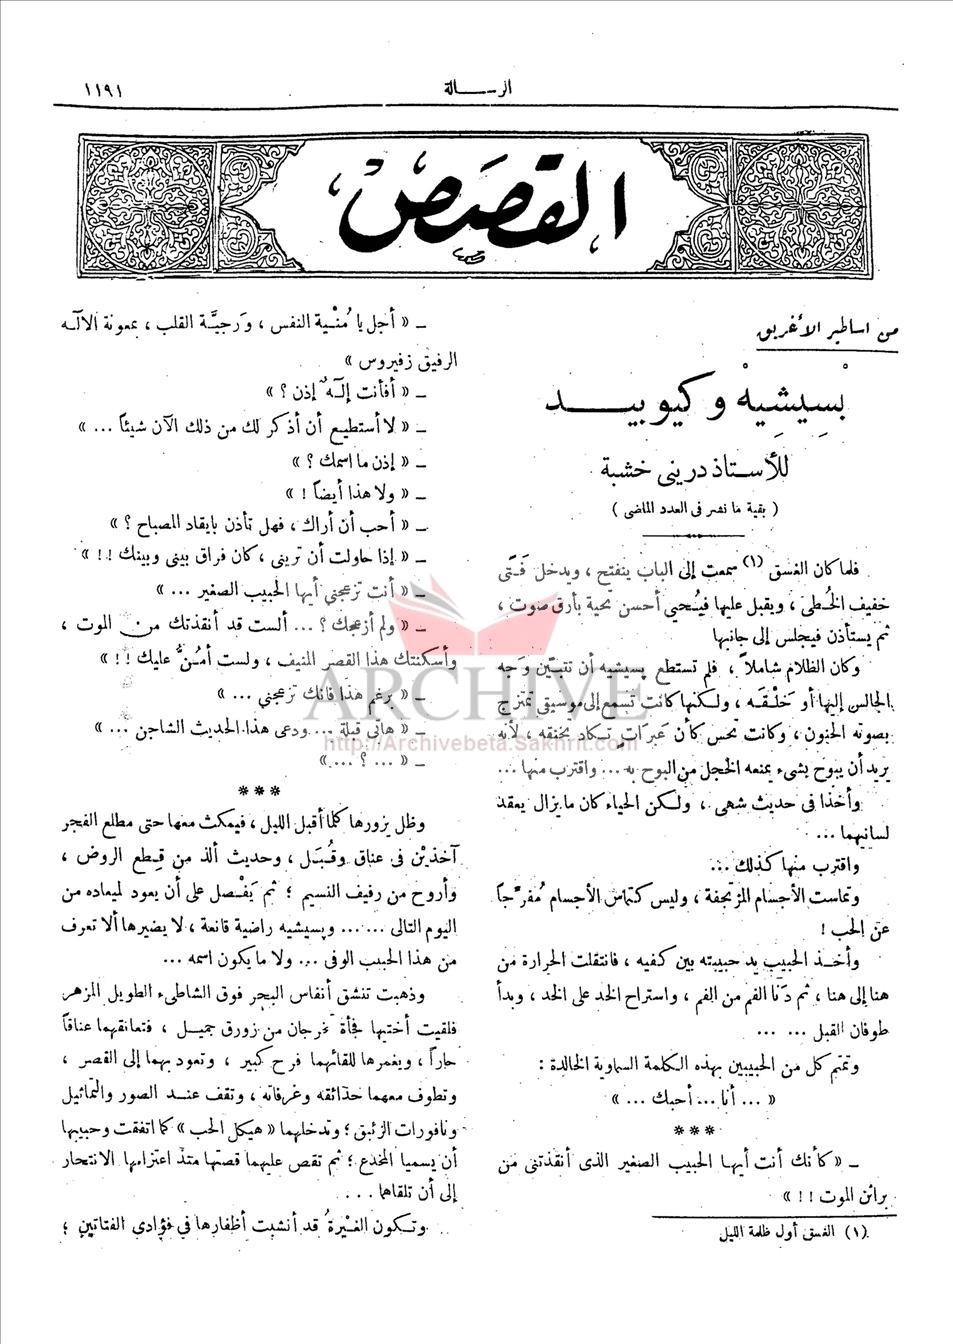 ١١٩١
الرســـالة
القصص
من اساطير الأغريق
بْسِيشِيهْ وكيوبيـــد
للأستاذ دريني خشبة
( بقية ما نشر فى العدد الماضى )
فلما كان الغسق (١) سمعت إلى الباب ينفتح ، ويدخل فَتًى
خفيف الخُطى ، ويقبل عليها فيُحَيي أحسن تحية بأرق صوت ،
ثم يستأذن فيجلس إلى جانبها
وكان الظلام شاملاً ، فلم تستطع پسيشيه أن تتبيَّن وَجه
الجالس إليها أو خَلْقَه ، ولكنها كانت تسمع إلى موسيقى تمتزج
بصوته الحنون ، وكانت تحس كأن عَبَراتٍ تكاد تخنقه ، لأنه
يريد أن يبوح بشىء يمنعه الخجل من البوح به ... واقترب منها ...
وأخذا فى حديث شهى ، ولكن الحياء كان ما يزال يعقد
لسانيهما ...
واقترب منها كذلك ...
وتماست الأجسام المرتجفة ، وليس كتماس الأجسام مُفرِّجاً
عن الحب !
وأخذ الحبيب يد حبيبته بين كفيه ، فانتقلت الحرارة من
هنا إلى هنا ، ثم دَنا الفم من الفم ، واستراح الخد على الخد ، وبدأ
طوفان القبل ... ...
وتمتم كل من الحبيبين بهذه الكلمة السماوية الخالدة :
« ... أنا ... أحبك ... »
***
ـ « كأنك أنت أيها الحبيب الصغير الذى أنقذتنى من
براثن الموت !! »
(١) الغسق أول ظلمة الليل
ـ « أجل يا مُنْية النفس ، وَرجيَّة القلب ، بمعونة الآلـه
الرفيق زفيروس »
ـ « أفأنت إلـهٌ إذن ؟ »
ـ « لا أستطيع أن أذكر لك من ذلك الآن شيئاً ... »
ـ « إذن ما اسمك ؟ »
ـ « ولا هذا أيضاً ! »
ـ « أحب أن أراك ، فهل تأذن بايقاد المصباح ؟ »
ـ « إذا حاولت أن تريني ، كان فراق بينى وبينك !! »
ـ « أنت تزعجني أيها الحبيب الصغير ... »
ـ « ولم أزعجك ؟ ... ألست قد أنقذتك من الموت ،
وأسكنتك هذا القصر المنيف ، ولست أمُنُّ عليك !! »
ـ « برغم هذا فانك تزعجني ... »
ـ « هاتى قبلة ... ودعى هذا الحديث الشاجن ... »
ـ « ... ؟ ... »
***
وظل يزورها كلما أقبل الليل ، فيمكث معها حتى مطلع الفجر
آخذيْن فى عناق وقُبَل ، وحديث ألذ من قِطع الروض ،
وأروح من رفيف النسيم ؛ ثم يَفْصل على أن يعود لميعاده من
اليوم التالى ... ... وپسيشيه راضية قانعة ، لا يضيرها ألا تعرف
من هذا الحبيب الوفى ... ولا ما يكون اسمه ...
وذهبت تنشق أنفاس البحر فوق الشاطىء الطويل المزهر
فلقيت أختيها فجأة تخرجان من زورق جميل ، فتعانقهما عناقاً
حاراً ، ويغمرها للقائهما فرح كبير ، وتعود بهما إلى القصر ،
وتطوف معهما حدائقه وغرفاته ، وتقف عند الصور والتماثيل
ونافورات الزئبق ؛ وتدخلهما « هيكل الحب » كما اتفقت وحبيبها
أن يسميا المخدع ؛ ثم تقص عليهما قصتها منذ اعتزامها الانتحار
إلى أن تلقاهما . . .
وتكون الغَيْرةُ قد أنشبت أظفارها في فؤادى الفتاتين ؛
ARCHIVE
http://Archivebeta.Sakhrit.com